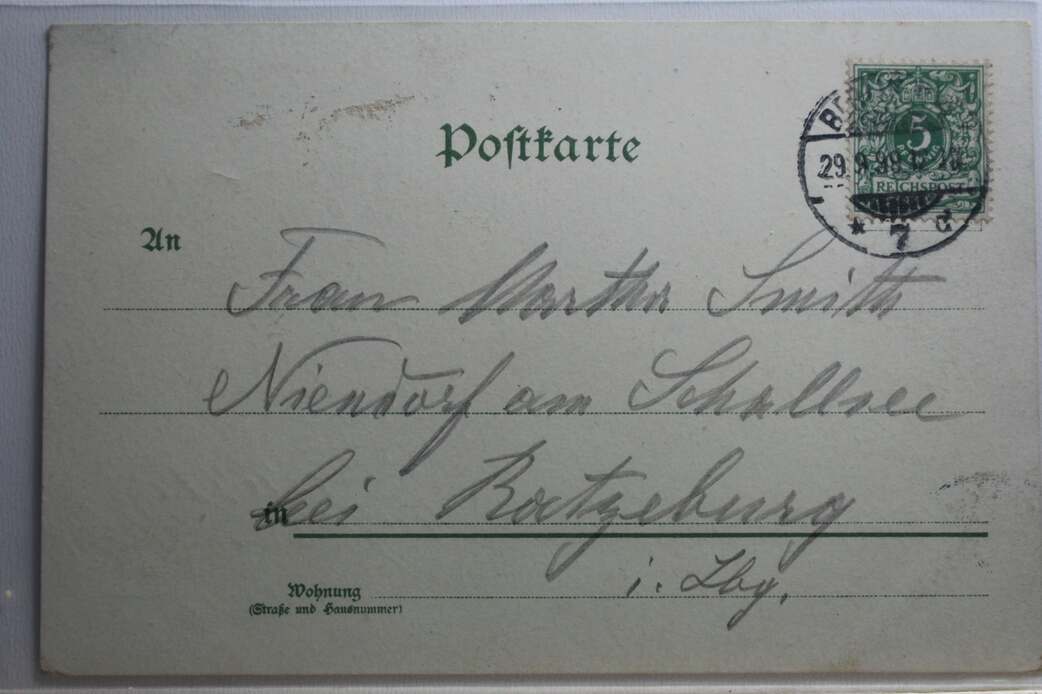 Postkarte
5
REICHSPOST
29.9.99
* 7 c
An
Frau Martha Smith
Niendorf am Schallsee
in
bei Ratzeburg
i. Lbg.
Wohnung
(Straße und Hausnummer)